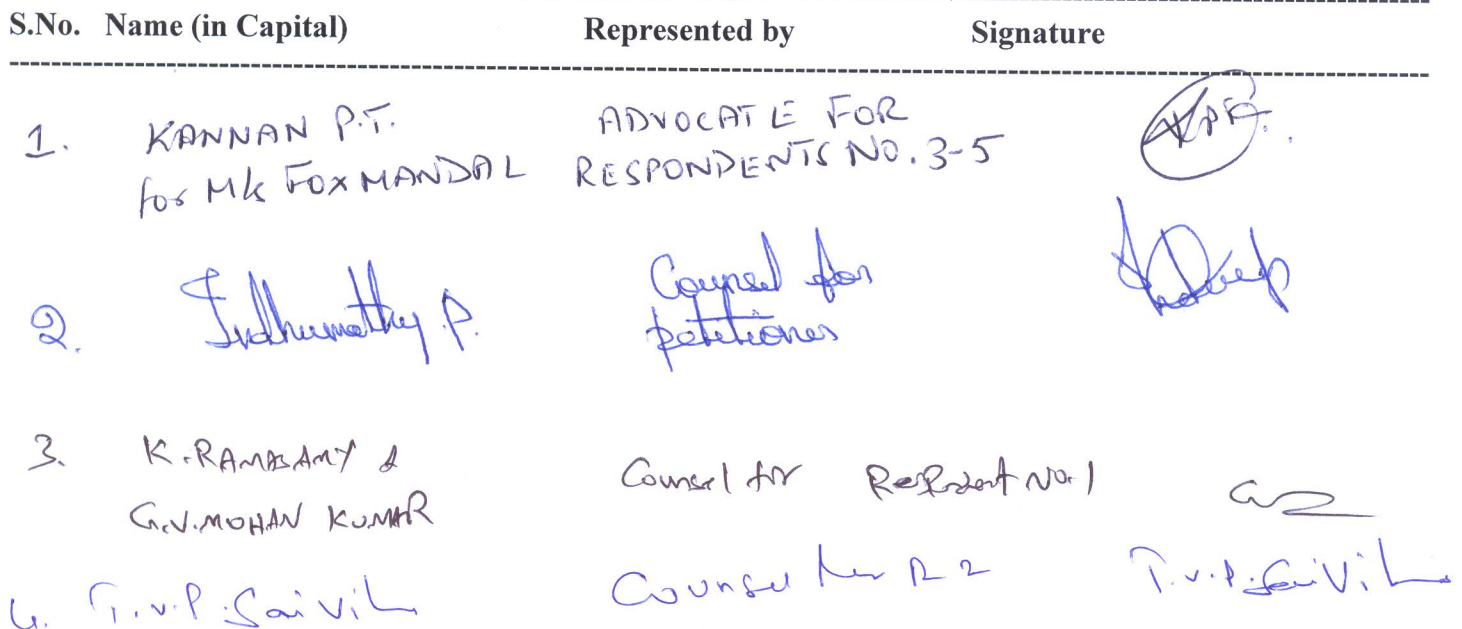 S.No. Name (in Capital) Represented by Signature
1. KANNAN P.T. ADVOCATE FOR
for M/s FOX MANDAL RESPONDENTS NO. 3-5
2. Indhumathy P. Counsel for
petitioner
3. K. RAMASAMY &
G.V. MOHAN KUMAR Counsel for Respondent No. 1
4. T.V.P. Sai Counsel for R 2 T.V.P. Sai